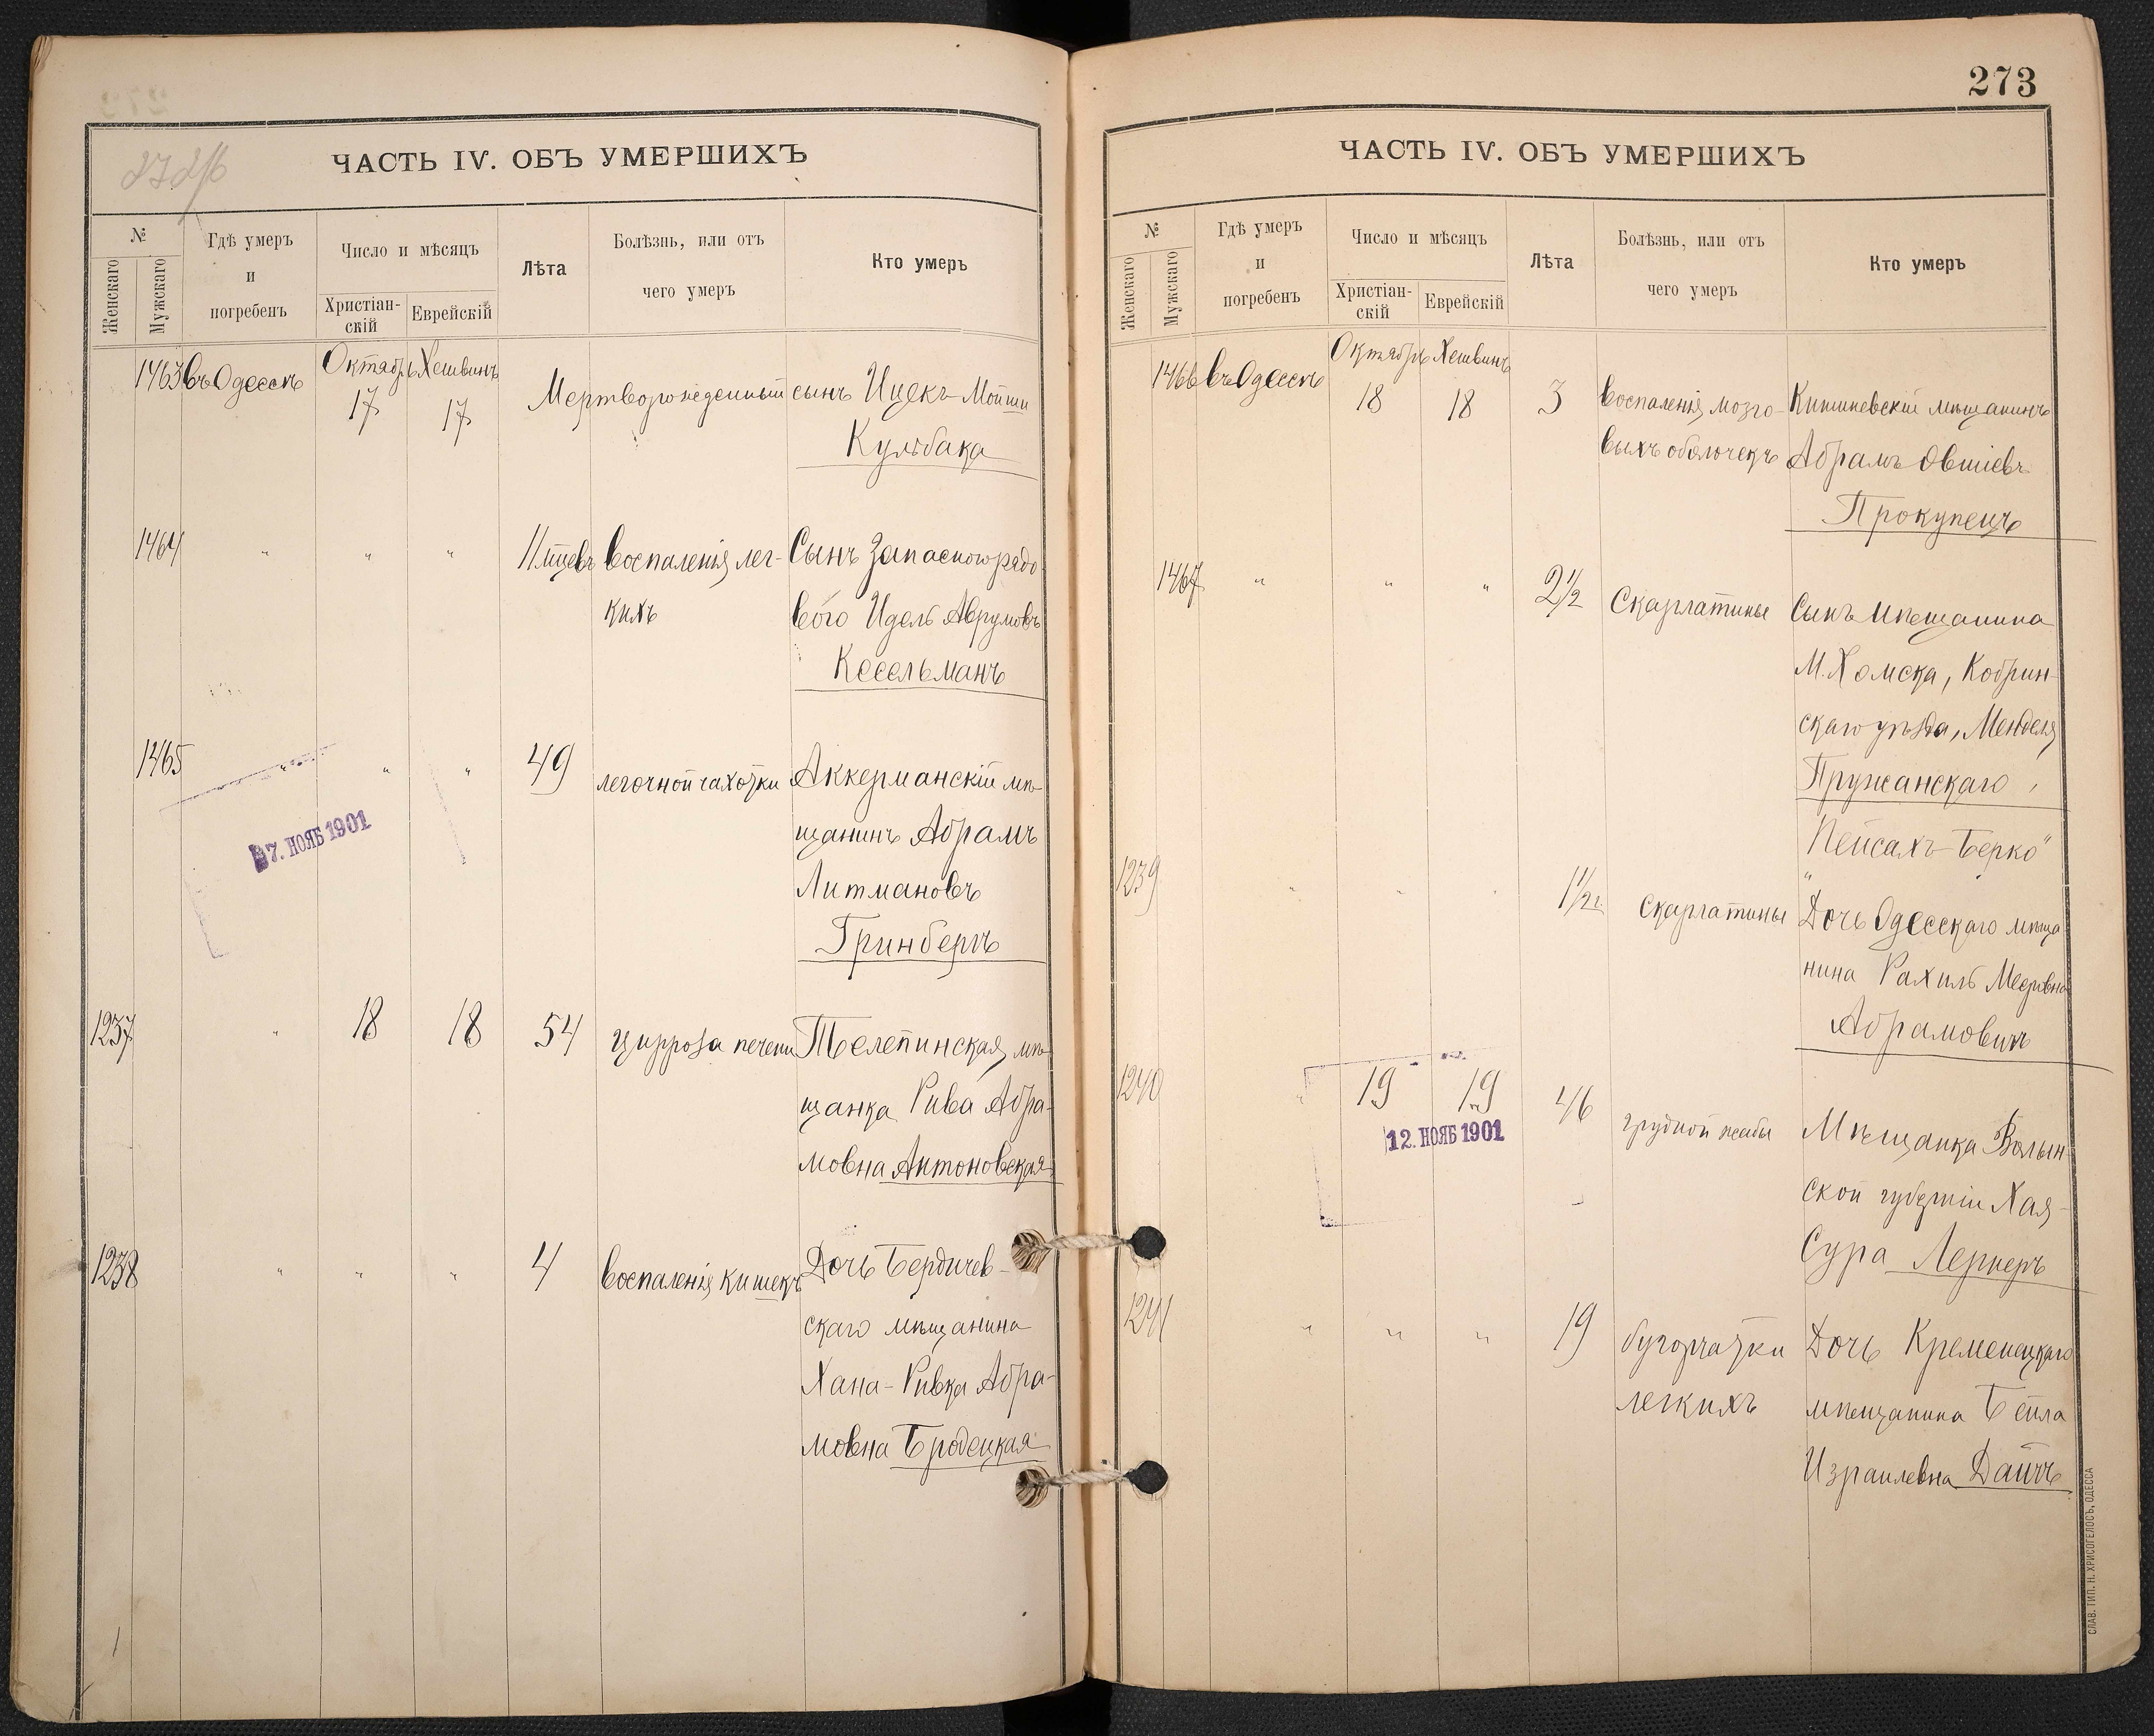 272/б
ЧАСТЬ IV. ОБЪ УМЕРШИХЪ
№
Женскаго
Мужскаго
Гдѣ умеръ
и
погребенъ
Число и мѣсяцъ
Христіан-
скій
Еврейскій
Лѣта
Болѣзнь, или отъ
чего умеръ
Кто умеръ
1463 въ Одессѣ Октябрь Хешвинъ
17 17 Мертворожденный сынъ Ицекъ-Мойши
Кульбака
1464 " " " 11 мцевъ воспаленія лег- Сынъ запасного рядо
кихъ вого Идель Аврумовъ
Кесельманъ
1465 " " " 49 легочной чахотки Аккерманскій мѣ-
щанинъ Абрамъ
Литмановъ
Гринбергъ
27. НОЯБ 1901
1237 " 18 18 54 цирроза печени Телепинская мѣ-
щанка Рива Абра-
мовна Антоновская
1238 " " " 4 воспаленія кишекъ Дочь Бердичев-
скаго мѣщанина
Хана-Ривка Абра-
мовна Бродецкая
273
ЧАСТЬ IV. ОБЪ УМЕРШИХЪ
№
Женскаго
Мужскаго
Гдѣ умеръ
и
погребенъ
Число и мѣсяцъ
Христіан-
скій
Еврейскій
Лѣта
Болѣзнь, или отъ
чего умеръ
Кто умеръ
1466 въ Одессѣ Октябрь Хешвинъ
18 18 3 воспаленія мозго- Кишиневскій мѣщанинъ
выхъ оболочекъ Абрамъ Овшіевъ
Прокупецъ
1467 " " " 2 1/2 Скарлатины Сынъ мѣщанина
М. Хомска, Кобрин-
скаго уѣзда, Менделя
Пружанскаго,
Пейсахъ-Берко"
1239 " " " 1 1/2 г. Скарлатины "Дочь Одесскаго мѣща
нина Рахиль
Абрамовичъ
1240 " 19 19 46 грудной жабы Мѣщанка Волын-
ской губерніи Хая-
Сура Лернеръ
12. НОЯБ 1901
1241 " " " 19 бугорчатки Дочь Кременецкаго
легкихъ мѣщанина Бейла
Израилевна Дайчъ
СЛАВ. ТИП. Н. ХРИСОГЕЛОСЪ, ОДЕССА